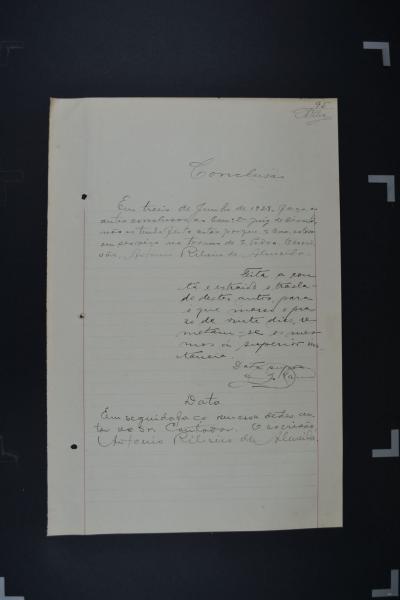 95
Conclusão
Em treis de Junho de 1928 faço os
autos conclusos ao Exmº Juiz de Direito,
não o tendo feito antes porque S. Exa. esteve
em serviço no termo de Escri-
vão, Antonio Ribeiro de Almeida
Feita a con-
ta e extraido o trasla-
do destes autos para
o que marco o pra-
so de vinte dias, re-
mettam-se os mes-
mos á superior ins-
tancia.
Data supra
Data
Em seguida faço remessa destes au-
tos ao Sr. Contador. O escrivão,
Antonio Ribeiro de Almeida